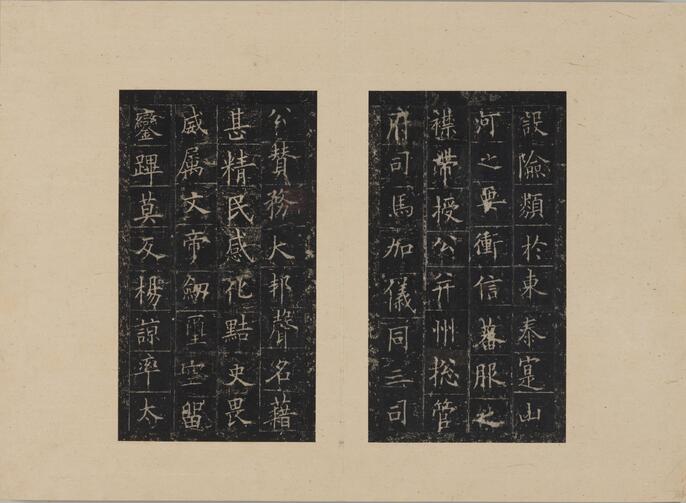 設險類於東秦寔山
河之要衝信蕃服之
襟帶授公并州揔管
府司馬加儀同三司
公贊務大邦聲名藉
甚精民感化黠吏畏
威属文帝劒璽空留
鑾蹕莫反楊諒率太